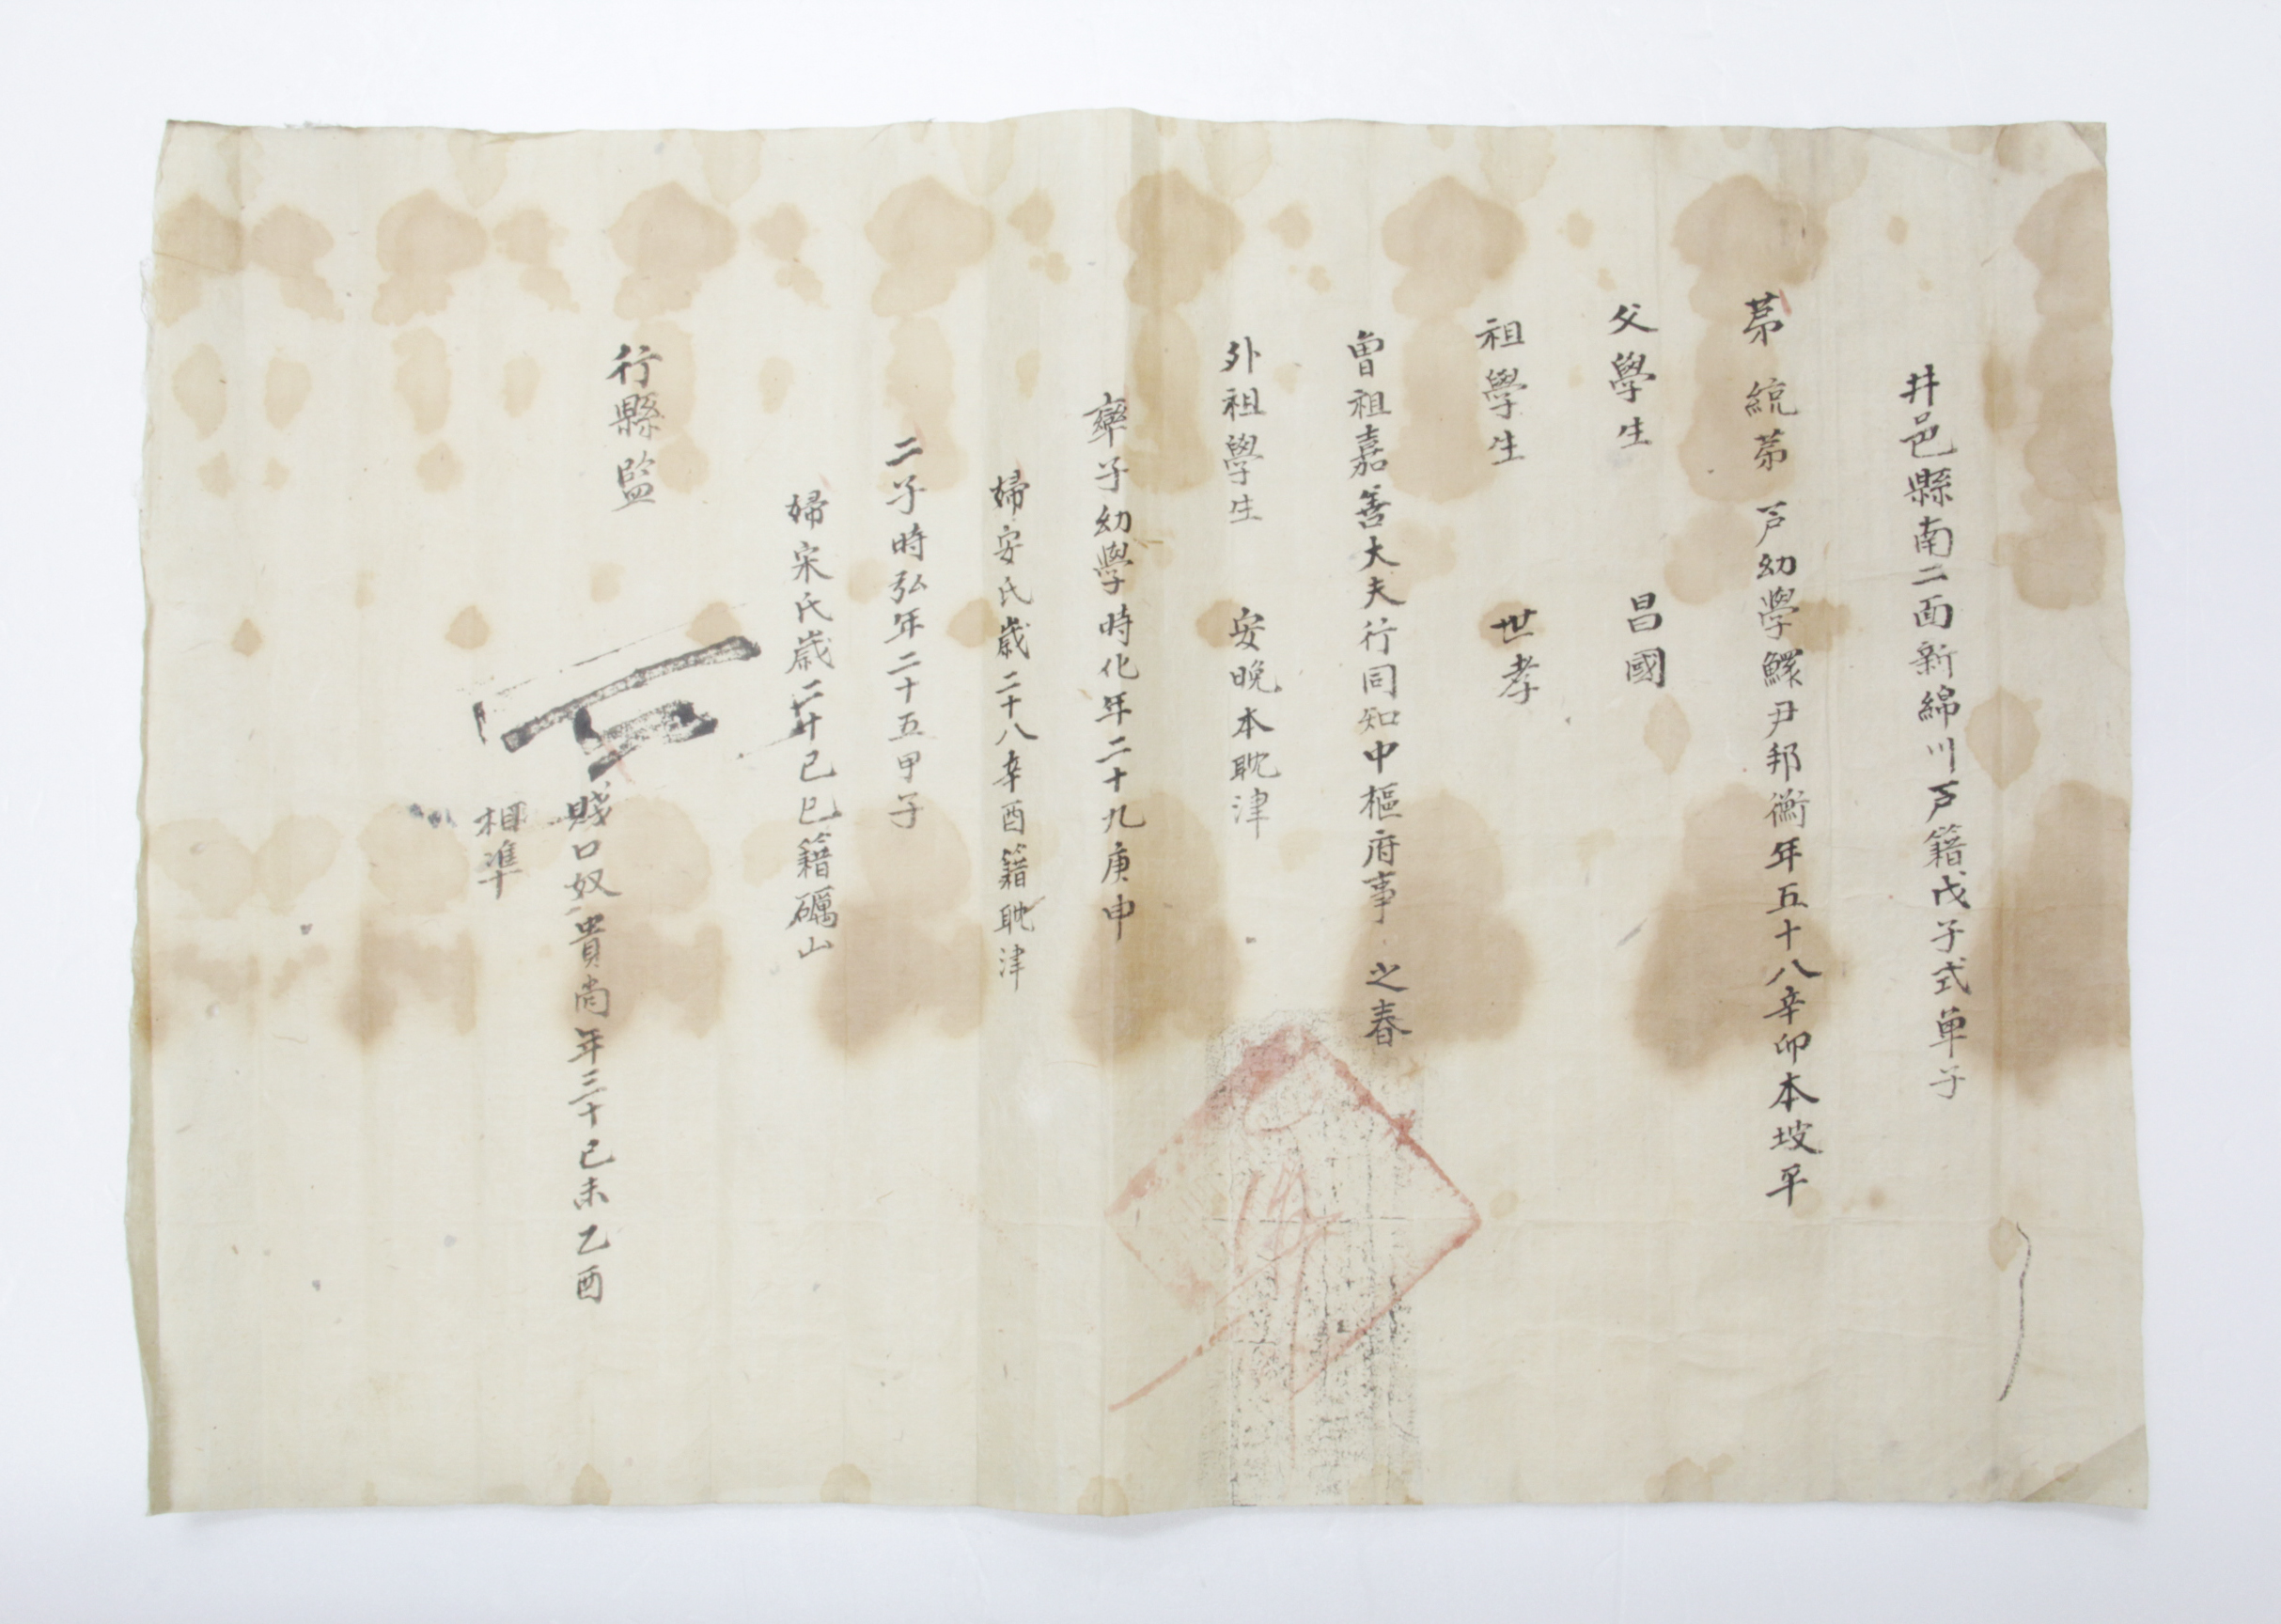 井邑縣南二面新綿川戶籍戊子式单子
苐 統苐 戶幼學鰥尹邦衡年五十八辛卯本坡平
父學生 昌國
祖學生 世孝
曾祖嘉善大夫行同知中樞府事 之春
外祖學生 安晚本耽津
率子幼學時化年二十九庚申
婦安氏歲二十八辛酉籍耽津
二子時弘年二十五甲子
婦宋氏歲二十己巳籍礪山
行縣監
賤口奴貴尚年三十己未乙酉
相準